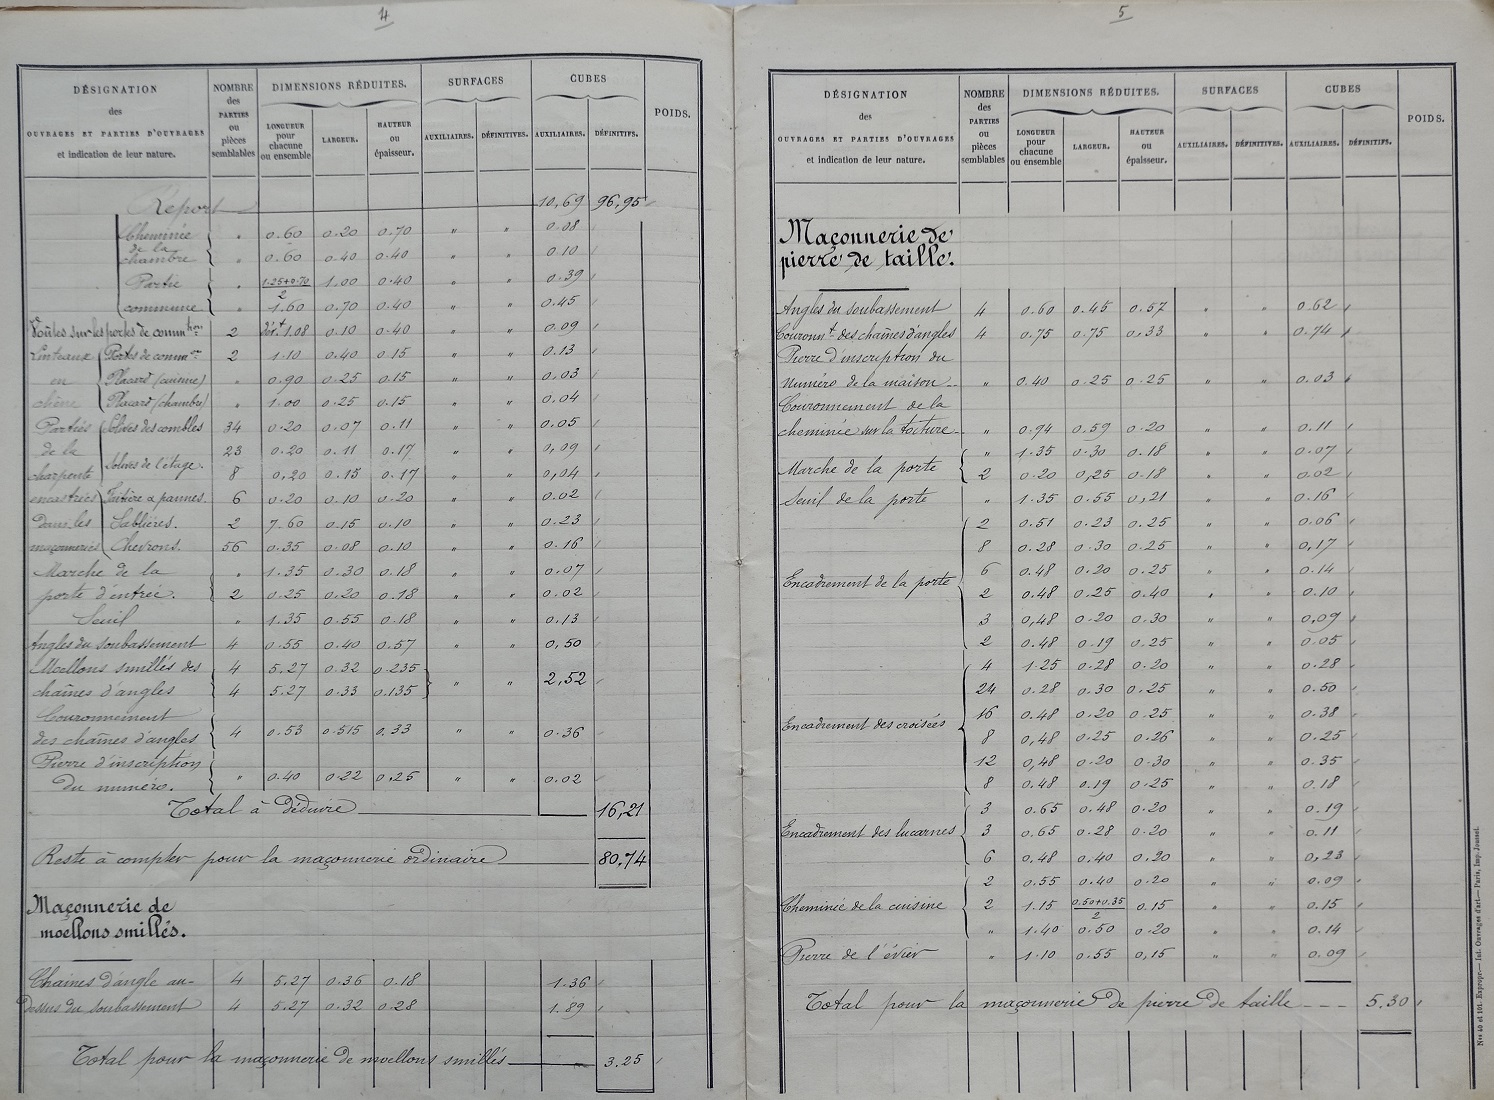 4
DÉSIGNATION des OUVRAGES ET PARTIES D'OUVRAGES et indication de leur nature.
NOMBRE des PARTIES ou pièces semblables
DIMENSIONS RÉDUITES.
LONGUEUR pour chacune ou ensemble
LARGEUR.
HAUTEUR ou épaisseur.
SURFACES
AUXILIAIRES. DÉFINITIVES.
CUBES
AUXILIAIRES. DÉFINITIFS.
POIDS.
Report 10,69 96,95
Cheminée de la chambre { " 0.60 0.20 0.70 " " 0.08
" 0.60 0.40 0.40 0.10
Partie " 1.25+0.70/2 1.00 0.40 " " 0.39
commune " 1.60 0.70 0.40 " " 0.45
Voûtes sur les portes de commᵘⁿ 2 dévᵗ 1.08 0.10 0.40 " " 0.09
Linteaux { Portes de commᵒⁿ 2 1.10 0.40 0.15 " " 0.13
en Placard (cuisine) " 0.90 0.25 0.15 " " 0.03
chêne Placard (chambre) " 1.00 0.25 0.15 " " 0.04
Parties { Solives des combles 34 0.20 0.07 0.11 " " 0.05
de la Solives de l'étage. 23 0.20 0.11 0.17 " " 0,09
charpente 8 0,20 0.15 0.17 " " 0,04
encastrées Faîtière & pannes. 6 0.20 0.10 0.20 " " 0.02
dans les Sablières. 2 7.60 0.15 0.10 " " 0.23
maçonneries Chevrons. 56 0.35 0.08 0.10 " " 0.16
Marche de la " 1.35 0.30 0.18 " " 0.07
porte d'entrée. 2 0.25 0.20 0.18 " " 0.02
Seuil " 1.35 0.55 0.18 " " 0.13
Angles du soubassement 4 0.55 0.40 0.57 " " 0,50
Moellons smillés des 4 5.27 0.32 0.235
chaînes d'angles 4 5.27 0.33 0.135 " " 2,52
Couronnement
des chaînes d'angles 4 0.53 0.515 0.33 " " 0.36
Pierre d'inscription
du numéro. " 0.40 0.22 0,25 " " 0.02
Total à déduire 16,21
Reste à compter pour la maçonnerie ordinaire 80,74
Maçonnerie de
moellons smillés.
Chaînes d'angle au- 4 5.27 0.36 0.18 1.36
dessus du soubassement 4 5.27 0.32 0.28 1.89
Total pour la maçonnerie de moellons smillés 3.25
5
DÉSIGNATION des OUVRAGES ET PARTIES D'OUVRAGES et indication de leur nature.
NOMBRE des PARTIES ou pièces semblables
DIMENSIONS RÉDUITES.
LONGUEUR pour chacune ou ensemble
LARGEUR.
HAUTEUR ou épaisseur.
SURFACES
AUXILIAIRES. DÉFINITIVES.
CUBES
AUXILIAIRES. DÉFINITIFS.
POIDS.
Maçonnerie de
pierre de taille.
Angles du soubassement 4 0.60 0.45 0.57 " " 0.62
Couronnᵗ des chaînes d'angles 4 0.75 0.75 0.33 " " 0.74
Pierre d'inscription du
numéro de la maison " 0.40 0.25 0.25 " " 0.03
Couronnement de la
cheminée sur la toiture " 0.94 0.59 0.20 " " 0.11
Marche de la porte { " 1.35 0.30 0.18 " " 0.07
2 0.20 0,25 0.18 " " 0.02
Seuil de la porte " 1.35 0.55 0,21 " " 0.16
2 0.51 0.23 0.25 " " 0.06
8 0.28 0.30 0.25 " " 0,17
6 0.48 0.20 0.25 " " 0.14
Encadrement de la porte 2 0.48 0.25 0.40 " " 0.10
3 0,48 0.20 0.30 " " 0,09
2 0.48 0.19 0.25 " " 0.05
4 1.25 0.28 0.20 " " 0.28
24 0.28 0.30 0.25 " " 0.50
16 0.48 0.20 0.25 " " 0.38
Encadrement des croisées 8 0,48 0.25 0.26 " " 0.25
12 0,48 0.20 0.30 " " 0.35
8 0.48 0.19 0.25 " " 0.18
3 0.65 0.48 0.20 " " 0.19
Encadrement des lucarnes 3 0.65 0.28 0.20 " " 0.11
6 0.48 0.40 0.20 " " 0,23
2 0.55 0.40 0.20 " " 0.09
Cheminée de la cuisine 2 1.15 0.50+0.35/2 0.15 " " 0.15
" 1.40 0.50 0.20 " " 0.14
Pierre de l'évier " 1.10 0.55 0,15 " " 0.09
Total pour la maçonnerie de pierre de taille 5.30
Nᵒˢ 40 et 101. Expropr.—Int. Ouvrages d'art.—Paris, Imp. Jousset.